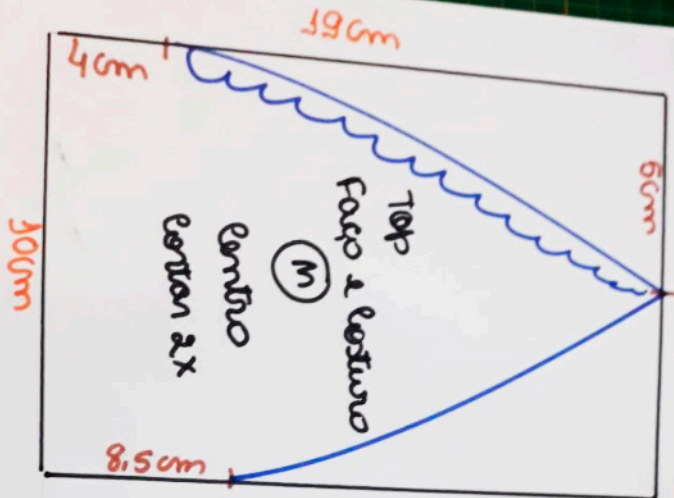 19cm
4cm
6cm
Top
Faço e Costuro
M
Centro
Cortar 2x
10cm
8,5cm